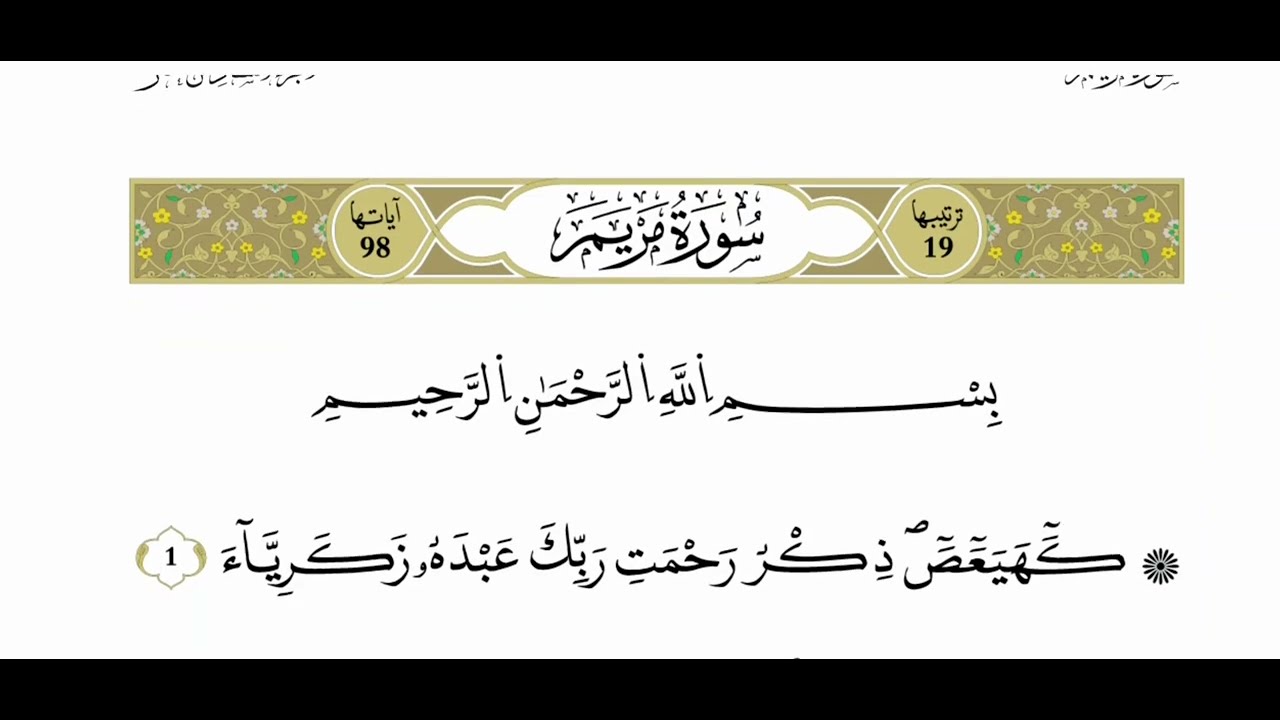 ترتيبها 19 سُورَةُ مَرْيَمَ آياتها 98
بِسْمِ اِ۬للَّهِ اِ۬لرَّحْمَٰنِ اِ۬لرَّحِيمِ
۞ كَٓهَيَعَٓصَٓ ۖ ذِكْرُ رَحْمَتِ رَبِّكَ عَبْدَهُۥ زَكَرِيَّآءَ 1